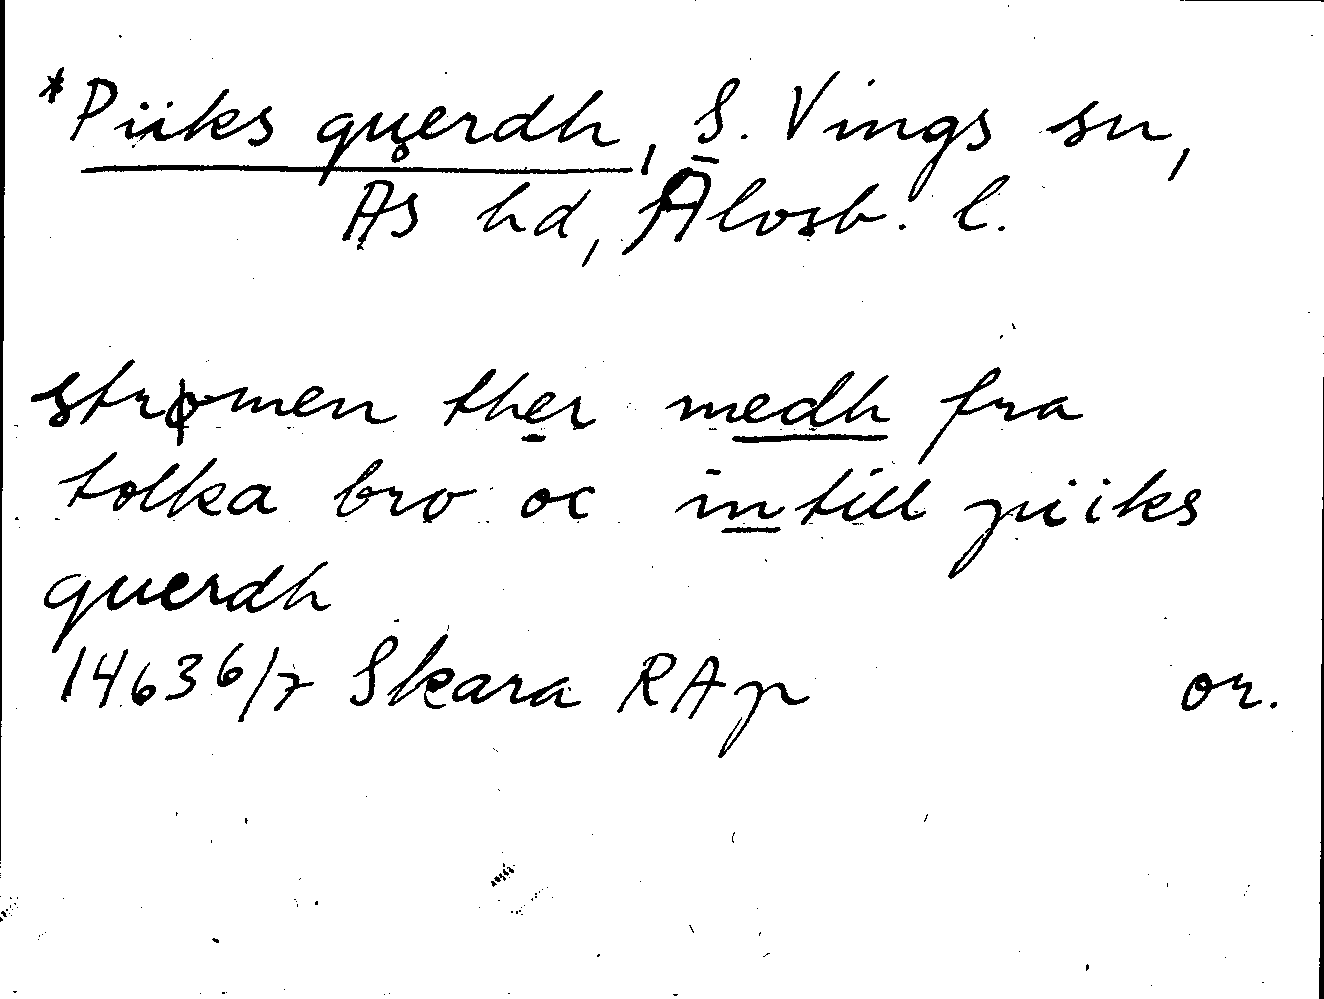 *Piiks querdh, S. Vings sn,
Ås hd, Älvsb. l.
strømen ther medh fra
tolka bro oc in till piiks
querdh
1463 6/7 Skara RAp or.